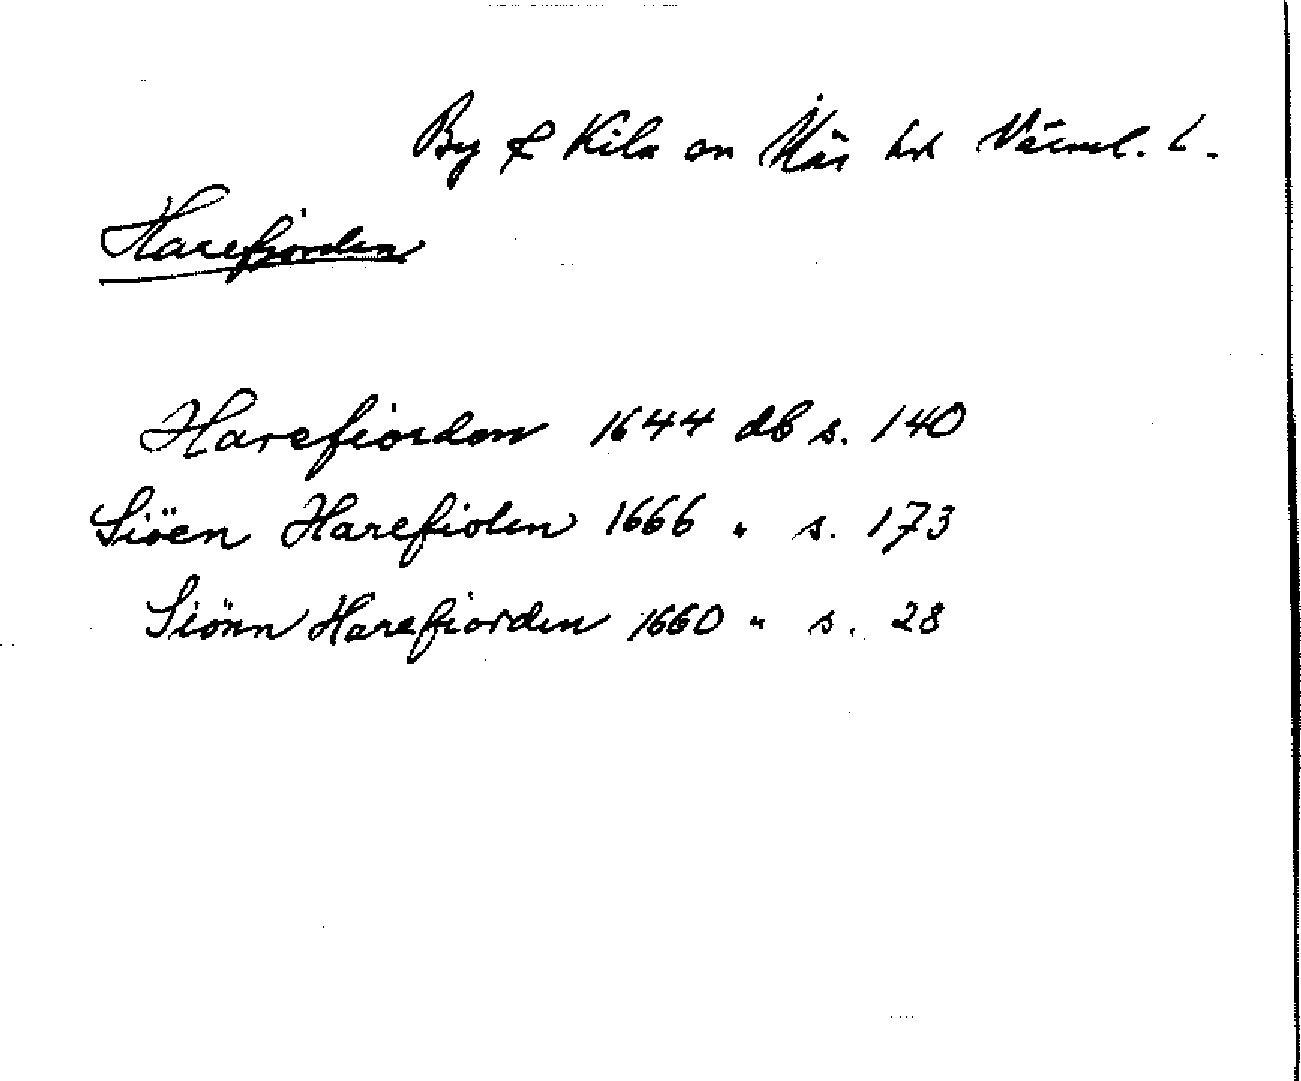 By & Kila sn Näs hd Värml. l.
Harefjorden
Harefiordon 1644 db s. 140
Siöen Harefiolen 1666 " s. 173
Siönn Harefiorden 1660 " s. 28